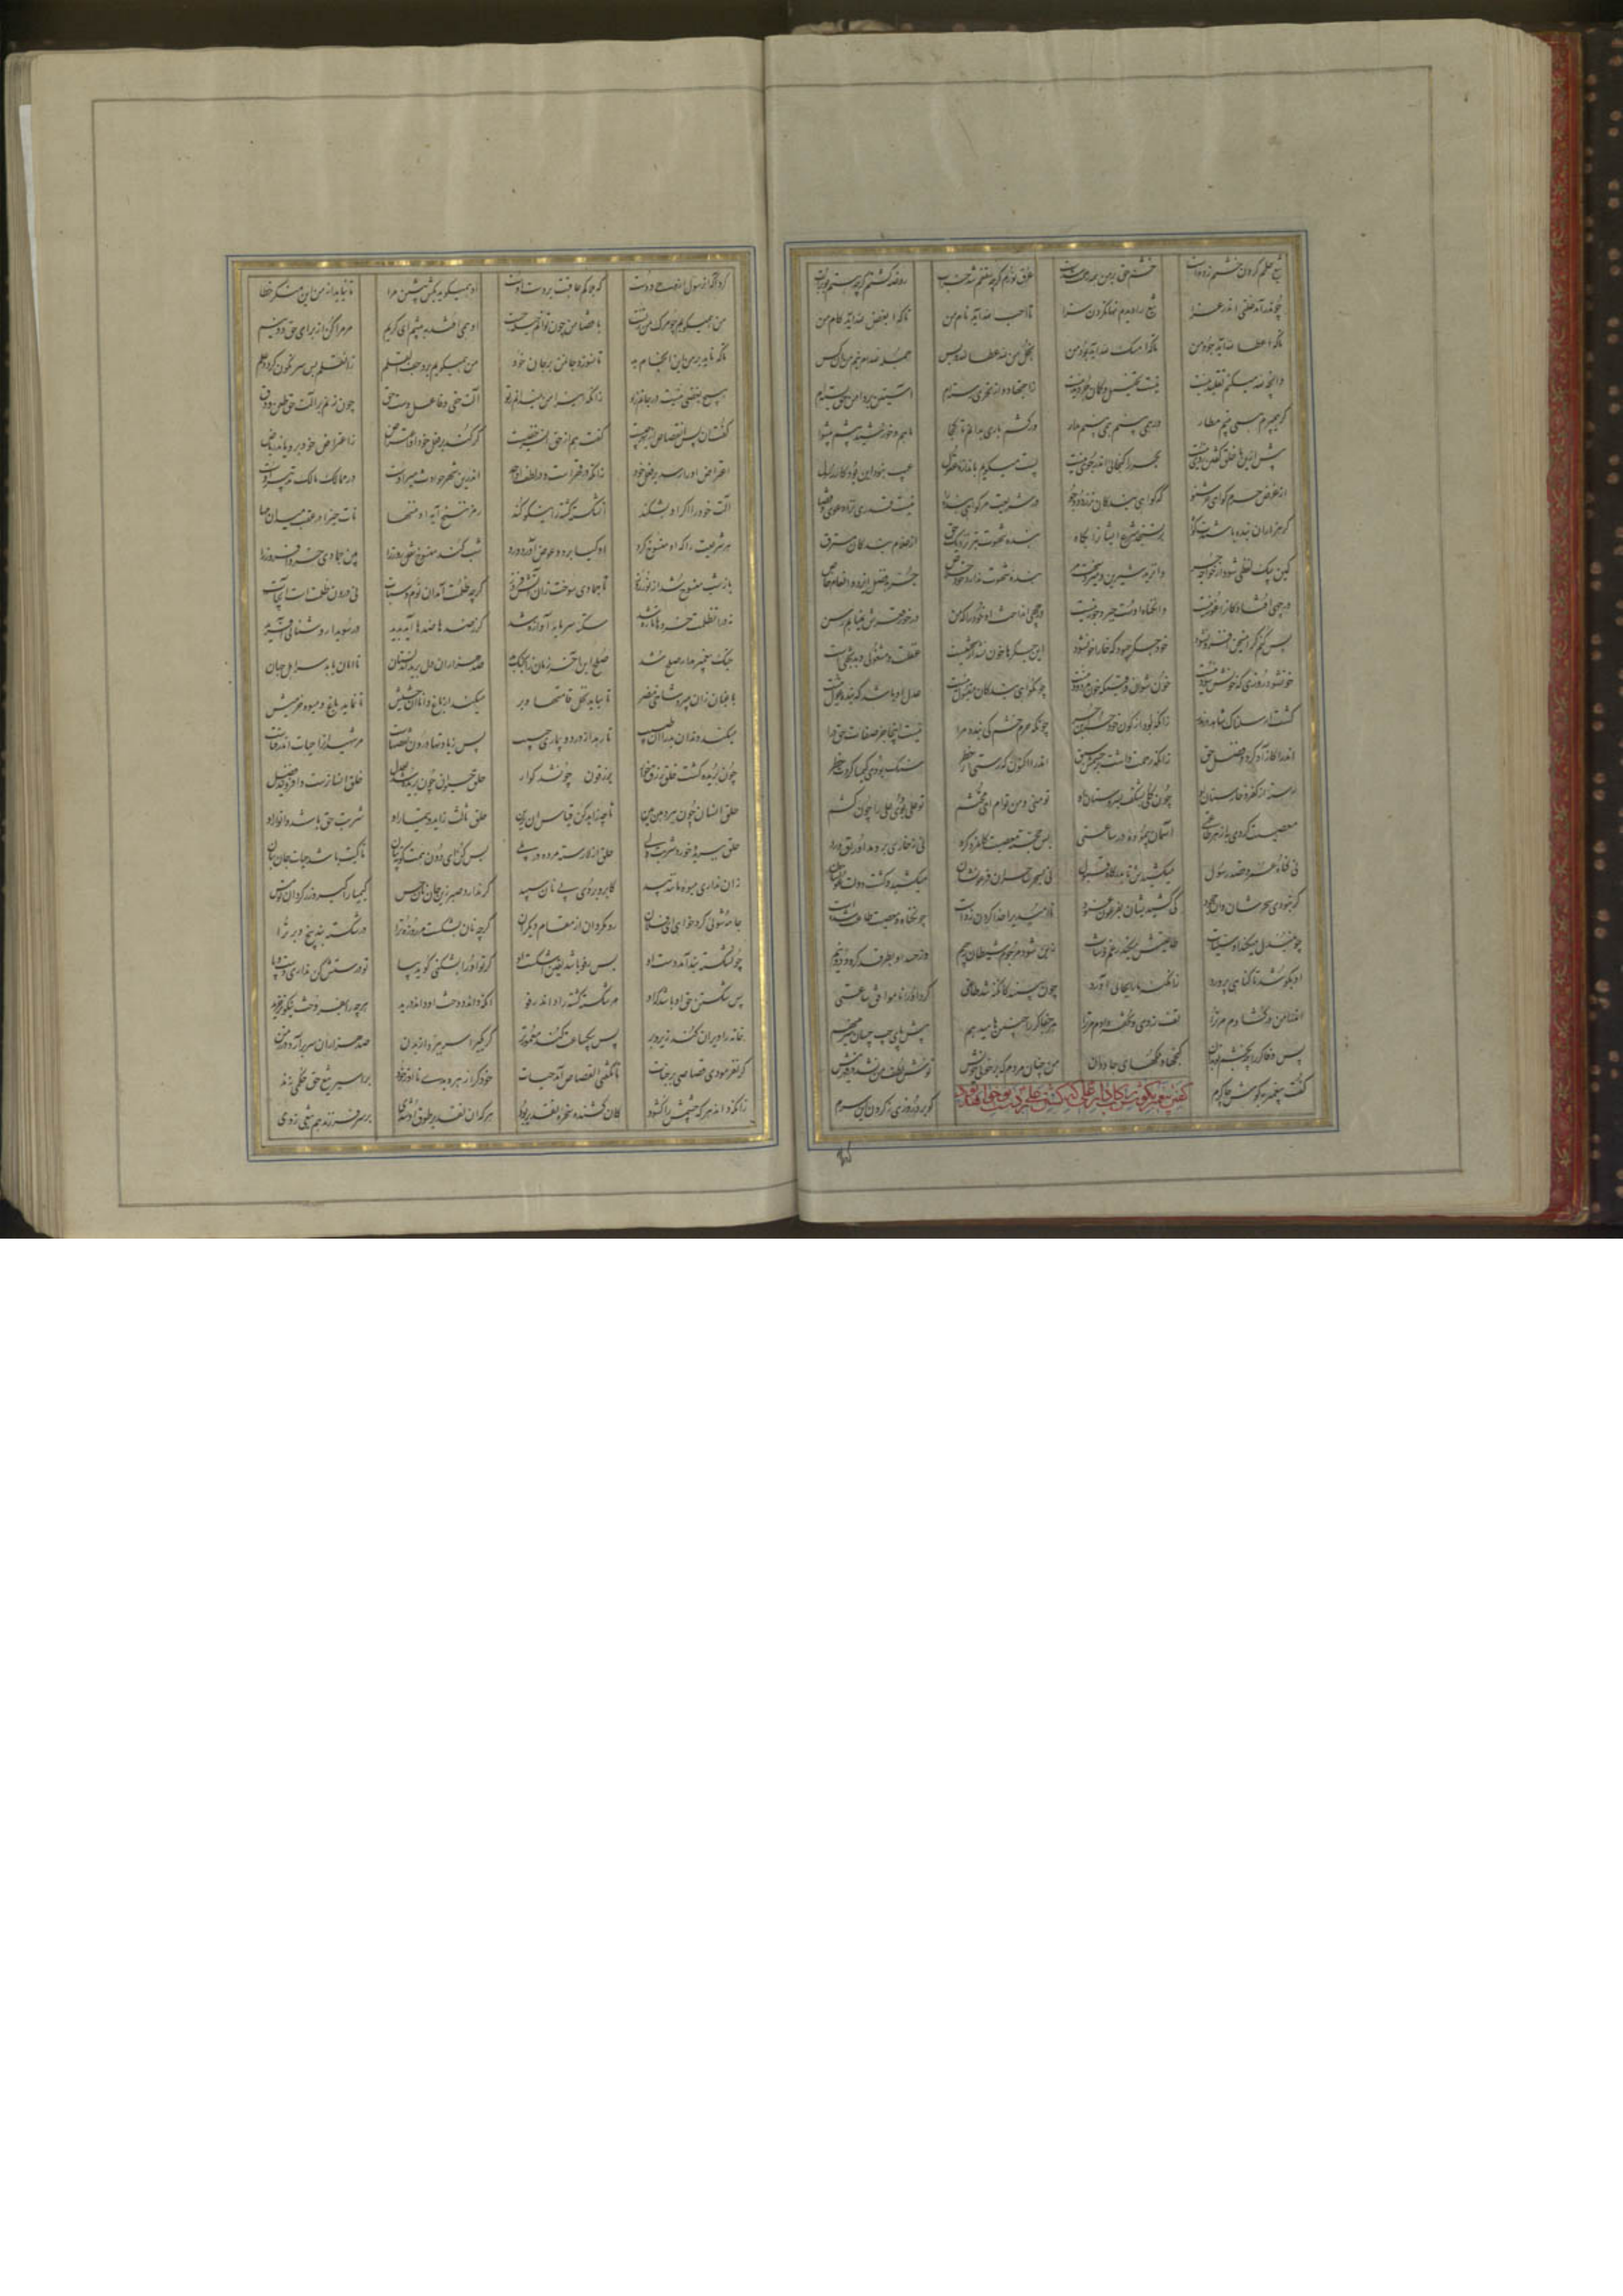 تیغ حلمم گردن خشمم زدست خشم حق بر من چو رحمت آمدست غرق نورم گرچه سقفم شد خراب روضه گشتم گرچه هستم بوتراب
چون درآمد علتی اندر غزا تیغ را دیدم نهان کردن سزا تا احب لله آید نام من تا که ابغض لله آید کام من
تا که اعطا لله آید جود من تا که امسک لله آید بود من بخل من لله عطا لله و بس جمله لله ام نیم من آن کس
وانچه لله میکنم تقلید نیست نیست تخییل و گمان جز دید نیست ز اجتهاد و از تحری رسته ام آستین بر دامن حق بسته ام
گر همی پرم همی بینم مطار ور کشم باری بدانم تا کجا ماهم و خورشید پیشم پیشوا
پیش ازین با خلق گفتن روی نیست بحر را گنجائی اندر جوی نیست پست میگویم باندازه عقول عیب نبود این بود کار رسول
از غرض حرم گواهی حر شنو که گواهی بندگان نرزد دو جو در شریعت مر گواهی بنده را نیست قدری نزد دعوی و قضا
گر هزاران بنده باشندت گواه بر نسنجد شرع ایشانرا بکاه بنده شهوت بتر نزدیک حق از غلام و بندگان مسترق
کین بیک لفظی شود از خواجه حر وان زید شیرین و میرد سخت مر بنده شهوت ندارد خود خلاص جز بفضل ایزد و انعام خاص
در چهی افتاد کانرا غور نیست وان گناه اوست جبر و جور نیست در چهی انداخت او خود را که من در خور قعرش نمی یابم رسن
بس کنم گر این سخن افزون شود خود جگر چبود که خارا خون شود این جگرها خون نشد از سختیست غفلت و مشغولی و بدبختیست
خون شود روزی که خونش سود نیست خون شو آن وقتی که خون مردود نیست چون گواهی بندگان مقبول نیست عدل او باشد که بنده غول نیست
گشت ارسلناک شاهد در نذر زانکه بود از کون خود حر بن حر چونکه حرم خشم کی بندد مرا نیست اینجا جز صفات حق درا
اندرا کازاد کردت فضل حق زانکه رحمت داشت بر خشمش سبق اندرا اکنون که رستی از خطر سنگ بودی کیمیا کردت گهر
رسته از کفر و خارستان او چون گلی بشکف بسروستان هو تو منی و من توام ای محتشم تو علی بودی علی را چون کشم
معصیت کردی به از هر طاعتی آسمان پیموده در ساعتی بس خجسته معصیت کان مرد کرد نی ز خاری بردمد اوراق ورد
نی گناه عمر و قصد رسول میکشیدش تا بدرگاه قبول نی بسحر ساحران فرعونشان میکشید و گشت دولت عونشان
گر نبودی سحرشان وان جحود کی کشیدیشان بفرعون عنود ناامیدی را خدا گردن زدست چون گناه و معصیت طاعت شدست
چون مبدل میکند او سیئات طاعتیش میکند رغم وشات زین شود مرجوم شیطان رجیم وز حسد او بطرقد گردد دو نیم
او بکوشد تا گناهی پرورد زان گنه ما را بچاهی آورد چون ببیند کان گنه شد طاعتی گردد او را نامبارک ساعتی
اندرا من در گشادم مر ترا تف زدی و تحفه دادم مر ترا مر جفاگر را چنین ها میدهم پیش پای چپ چسان سر مینهم
پس وفاگر را چه بخشم تو بدان گنجها و ملکهای جاودان من چنان مردم که بر خونی خویش نوش لطف من نشد در قهر نیش
گفت پیغمبر بگوش چاکرم کو برد روزی ز گردن این سرم
گفتن پیغمبر بگوش رکابدار علی که کشتن علی بر دست تو خواهد بود
کرد آگه آن رسول از وحی دوست که هلاکم عاقبت بر دست اوست او همیگوید بکش پیشین مرا تا نیاید از من این منکر خطا
من همیگویم چو مرگ من ز تست با قضا من چون توانم حیله جست او همی افتد بپیشم کای کریم مر مرا کن از برای حق دو نیم
تا که ناید بر من این انجام بد تا نسوزد جان من بر جان خود من همیگویم برو جف القلم زان قلم بس سرنگون گردد علم
هیچ بغضی نیست در جانم ز تو زانکه این را من نمیدانم ز تو آلت حقی و فاعل دست حق چون زنم بر آلت حق طعن و دق
گفت آن پس این قصاص از بهر چیست گفت هم از حق و این سر خفیست گر کند بر فعل خود او اعتراض ز اعتراض خود برویاند ریاض
اعتراض او را رسد بر فعل خود زانکه در قهرست و در لطف او احد اندرین شهر حوادث میر اوست در ممالک مالک تدبیر اوست
آلت خود را اگر او بشکند آن شکسته گشته را نیکو کند رمز ننسخ آیة او ننسها نات خیرا در عقب میدان مها
هر شریعت را که او منسوخ کرد او گیا برد و عوض آورد ورد شب کند منسوخ شغل روز را بین جمادی خرد افروز را
باز شب منسوخ شد از نور روز تا جمادی سوخت زان آتش فروز گرچه ظلمت آمد آن نوم و سبات نی درون ظلمتست آب حیات
نی در آن ظلمت خردها تازه شد سکته سرمایه آوازه شد که ز ضدها ضدها آید پدید در سویدا روشنائی آفرید
جنگ پیغمبر مدار صلح شد صلح این آخر زمان زان جنگ بد صد هزاران سر برید آن دلستان تا امان یابد سر اهل جهان
باغبان زان میبرد شاخ مضر تا بیابد نخل قامتها و بر میکند از باغ دانا آن حشیش تا نماید باغ و میوه خرمیش
میکند دندان بد را آن طبیب تا رهد از درد و بیماری حبیب پس زیادتها درون نقصهاست مر شهیدانرا حیات اندر فناست
چون بریده گشت حلق رزق خوار یرزقون فرحین شد گوار حلق حیوان چون بریده شد بعدل حلق انسان رست و افزونید فضل
حلق انسان چون ببرد هین ببین تا چه زاید کن قیاس آن برین حلق ثالث زاید و تیمار او شربت حق باشد و انوار او
حلق ببریده خورد شربت ولی حلق از لا رسته مرده در بلی بس کن ای دون همت کوته بنان تا کیت باشد حیات جان بنان
زان نداری میوه مانند بید کاب رو بردی پی نان سپید گر ندارد صبر زین نان جان حس کیمیا را گیر و زر گردان تو مس
جامه شوئی کرد خواهی ای فلان رو مگردان از محله گازران گرچه نان بشکست مر روزه ترا در شکسته بند پیچ و برتر آ
چون شکسته بند آمد دست او پس رفو باشد یقین اشکست او گر تو آنرا بشکنی گوید بیا تو درستش کن نداری دست و پا
پس شکستن حق او باشد که او مر شکسته گشته را داند رفو آنکه داند دوخت او داند درید هرچه را بفروخت نیکوتر خرید
خانه را ویران کند زیر و زبر پس بیکساعت کند معمورتر گر یکی را سر ببرد از بدن صد هزاران سر برآرد در زمن
گر نفرمودی قصاصی بر جنات یا نگفتی فی القصاص آمد حیات خود کرا زهره بدی تا او ز خود بر اسیر حکم حق تیغی زند
زانکه داند هر که چشمش را گشود کان کشنده سخره تقدیر بود هر که آن تقدیر طوق او شدی بر سر فرزند هم تیغی زدی